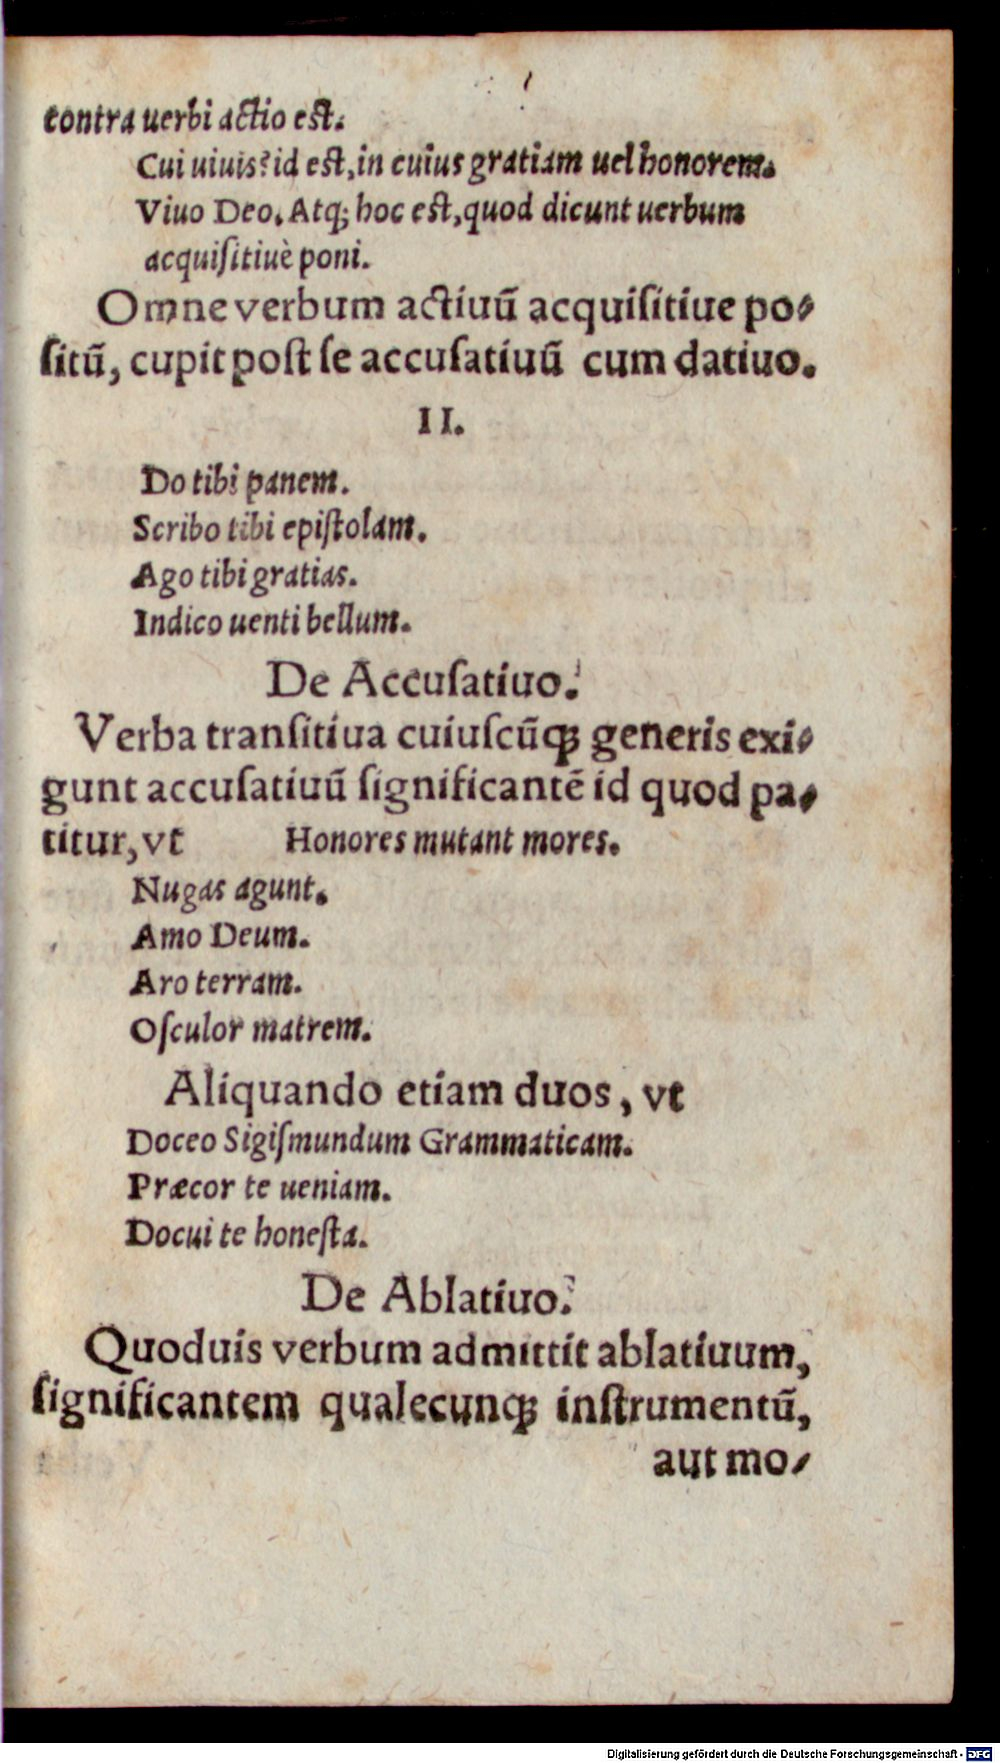 contra uerbi actio est.
Cui uiuis? id est, in cuius gratiam uel honorem.
Viuo Deo. Atq; hoc est, quod dicunt uerbum
acquiſitiuè poni.
Omne verbum actiuũ acquiſitiue po-
ſitũ, cupit poſt ſe accuſatiuũ cum datiuo.
II.
Do tibi panem.
Scribo tibi epiſtolam.
Ago tibi gratias.
Indico uenti bellum.
De Accuſatiuo.
Verba tranſitiua cuiuſcũq; generis exi-
gunt accuſatiuũ ſignificantẽ id quod pa-
titur, vt Honores mutant mores.
Nugas agunt.
Amo Deum.
Aro terram.
Oſculor matrem.
Aliquando etiam duos, vt
Doceo Sigiſmundum Grammaticam.
Præcor te ueniam.
Docui te honeſta.
De Ablatiuo.
Quoduis verbum admittit ablatiuum,
ſignificantem qualecunq; inſtrumentũ,
aut mo-
Digitalisierung gefördert durch die Deutsche Forschungsgemeinschaft - DFG